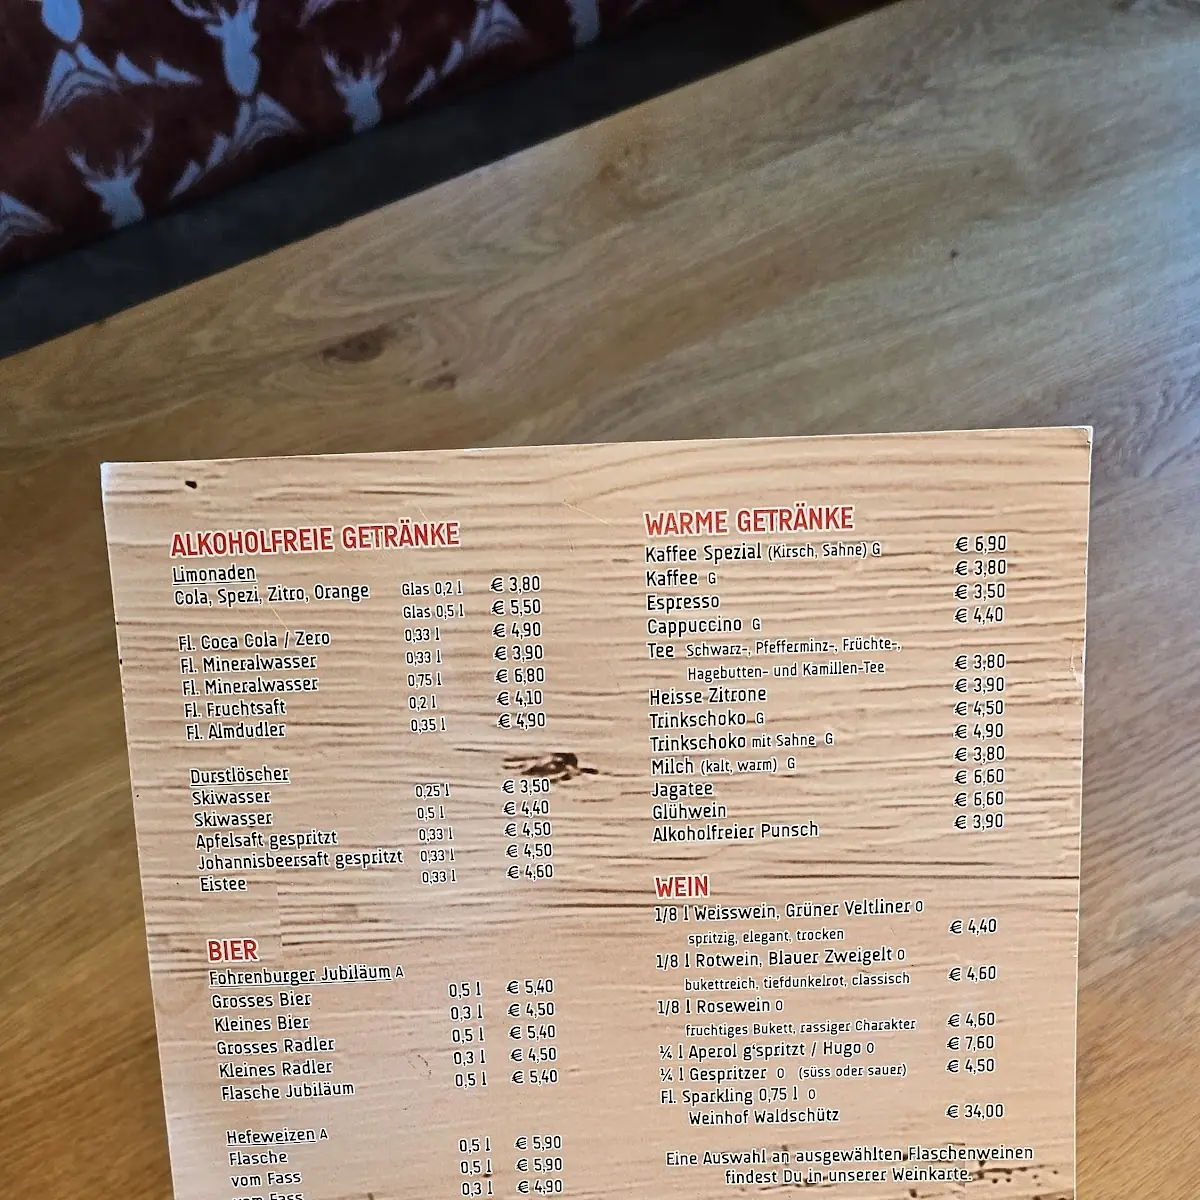 ALKOHOLFREIE GETRÄNKE
Limonaden
Cola, Spezi, Zitro, Orange Glas 0,2 l € 3,80
Glas 0,5 l € 5,50
Fl. Coca Cola / Zero 0,33 l € 4,90
Fl. Mineralwasser 0,33 l € 3,90
Fl. Mineralwasser 0,75 l € 6,80
Fl. Fruchtsaft 0,2 l € 4,10
Fl. Almdudler 0,35 l € 4,90
Durstlöscher
Skiwasser 0,25 l € 3,50
Skiwasser 0,5 l € 4,40
Apfelsaft gespritzt 0,33 l € 4,50
Johannisbeersaft gespritzt 0,33 l € 4,50
Eistee 0,33 l € 4,60
BIER
Fohrenburger Jubiläum A
Grosses Bier 0,5 l € 5,40
Kleines Bier 0,3 l € 4,50
Grosses Radler 0,5 l € 5,40
Kleines Radler 0,3 l € 4,50
Flasche Jubiläum 0,5 l € 5,40
Hefeweizen A
Flasche 0,5 l € 5,90
vom Fass 0,5 l € 5,90
vom Fass 0,3 l € 4,90
WARME GETRÄNKE
Kaffee Spezial (Kirsch, Sahne) G € 6,90
Kaffee G € 3,80
Espresso € 3,50
Cappuccino G € 4,40
Tee Schwarz-, Pfefferminz-, Früchte-,
Hagebutten- und Kamillen-Tee € 3,80
Heisse Zitrone € 3,90
Trinkschoko G € 4,50
Trinkschoko mit Sahne G € 4,90
Milch (kalt, warm) G € 3,80
Jagatee € 6,60
Glühwein € 6,60
Alkoholfreier Punsch € 3,90
WEIN
1/8 l Weisswein, Grüner Veltliner O
spritzig, elegant, trocken € 4,40
1/8 l Rotwein, Blauer Zweigelt O
bukettreich, tiefdunkelrot, classisch € 4,60
1/8 l Rosewein O
fruchtiges Bukett, rassiger Charakter € 4,60
¼ l Aperol g'spritzt / Hugo O € 7,60
¼ l Gespritzer O (süss oder sauer) € 4,50
Fl. Sparkling 0,75 l O
Weinhof Waldschütz € 34,00
Eine Auswahl an ausgewählten Flaschenweinen
findest Du in unserer Weinkarte.